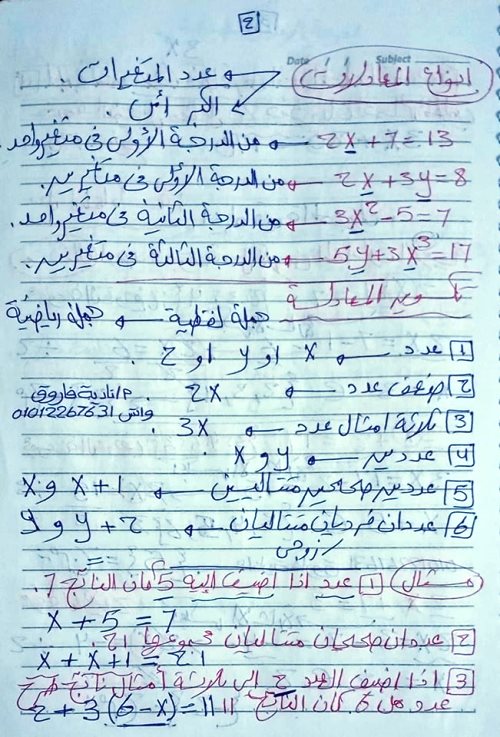 [2]
Date / / Subject
انواع المعادلات ← عدد المتغيرات .
← اكبر أس .
2x + 7 = 13 ← من الدرجة الأولى فى متغير واحد .
2x + 3y = 8 ← من الدرجة الأولى فى متغيرين .
3x² - 5 = 7 ← من الدرجة الثانية فى متغير واحد .
5y + 3x³ = 17 ← من الدرجة الثالثة فى متغيرين .
تكوين المعادلة
جملة لفظية ← جملة رياضية
[1] عدد ← x او y او z .
[2] ضعف عدد ← 2x
م/نادية فاروق
واتس 01012267631
[3] ثلاثة امثال عدد ← 3x .
[4] عددين ← y و x .
[5] عددين صحيحين متتاليين ← x+1 و x
[6] عددان فرديان متتاليان ← y+2 و y
زوجى
مثال [1] عدد اذا اضيف اليه 5 كان الناتج 7 .
x + 5 = 7
[2] عددان صحيحان متتاليان مجموعها 21 .
x + x + 1 = 21
[3] اذا اضيف العدد 2 الى ثلاثة أمثال ناتج طرح
عدد من 6 كان الناتج 11
2 + 3 (6 - x) = 11